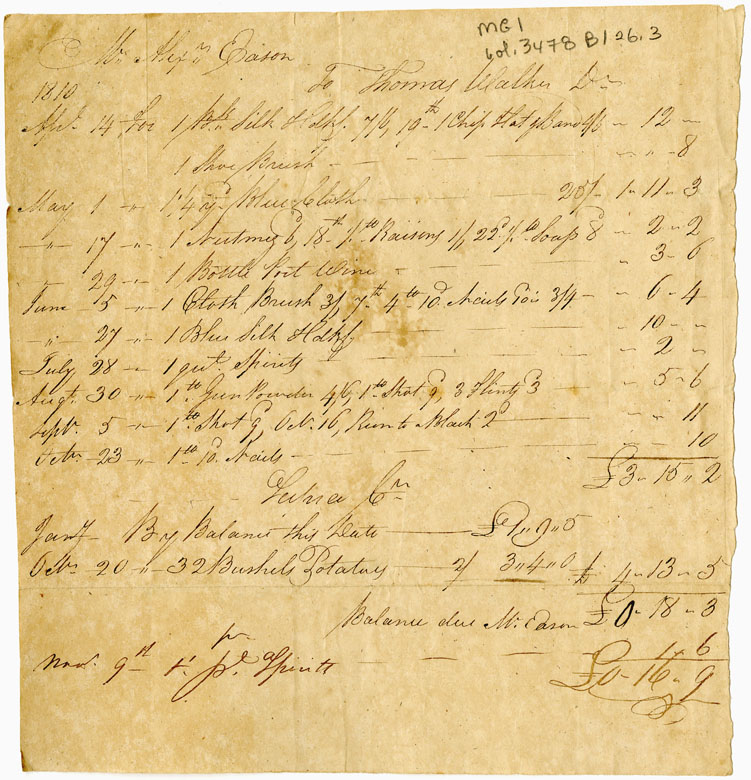 MG 1
vol. 3478 B1 26.3
Mr. Alexr. Eason
To Thomas Walker Dr
1810
Apl. 14 For 1 Blk Silk Hdkf. 7/6, 1 Chip Hat & Band " 12 "
1 Shoe Brush " " 8
May 1 " 1 1/4 yd. Blue Cloth 25/ 1 " 11 " 3
" 17 " 1 Nutmeg 6d, 18th 1/2 lb Raisins 1/, 22d 1/2 lb Soap 8d " 2 " 2
" 29 " 1 Bottle Port Wine " 3 " 6
June 5 " 1 Cloth Brush 3/, 7th 4 lb 10d. Nails 10d is 3/4 " 6 " 4
" 27 " 1 Blue Silk Hdkf " 10 "
July 28 " 1 qut. Spirits " 2 "
Augt. 30 " 1 lb Gun Powder 4/6, 1 lb Shot 9, 3 Flints 3 " 5 " 6
Sept. 5 " 1 lb Shot 9, Oct. 16, 2d " " 11
Octr. 23 " 1 lb 10d. Nails " " 10
£3 " 15 " 2
Cr
Jany By Balance this Date £1 " 9 " 5
Octr. 20 " 32 Bushels Potatoes 2/ 3 " 4 " 0 £ 4 " 13 " 5
Balance due Mr. Eason £0 " 18 " 3
Novr. 9th 1 pt. Spirits 1 " 6
£0 " 16 " 9